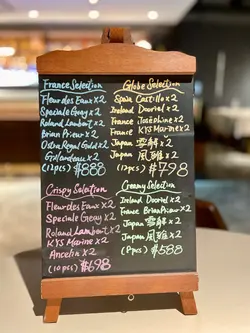 France Selection
Fleur des Eaux x 2
Speciale Geay x 2
Roland Lambert x 2
Brian Prieur x 2
Ostra Regal Gold x 2
Gillardeau x 2
(12pcs) $888
Globe Selection
Spain Castillo x 2
Ireland Dooriel x 2
France Joséphine x 2
France KYS Marine x 2
Japan x 2
Japan x 2
(12pcs) $798
Crispy Selection
Fleur des Eaux x 2
Speciale Geay x 2
Roland Lambert x 2
KYS Marine x 2
Ancelin x 2
(10pcs) $698
Creamy Selection
Ireland Dooriel x 2
France Brian Prieur x 2
Japan x 2
Japan x 2
(8pcs) $588